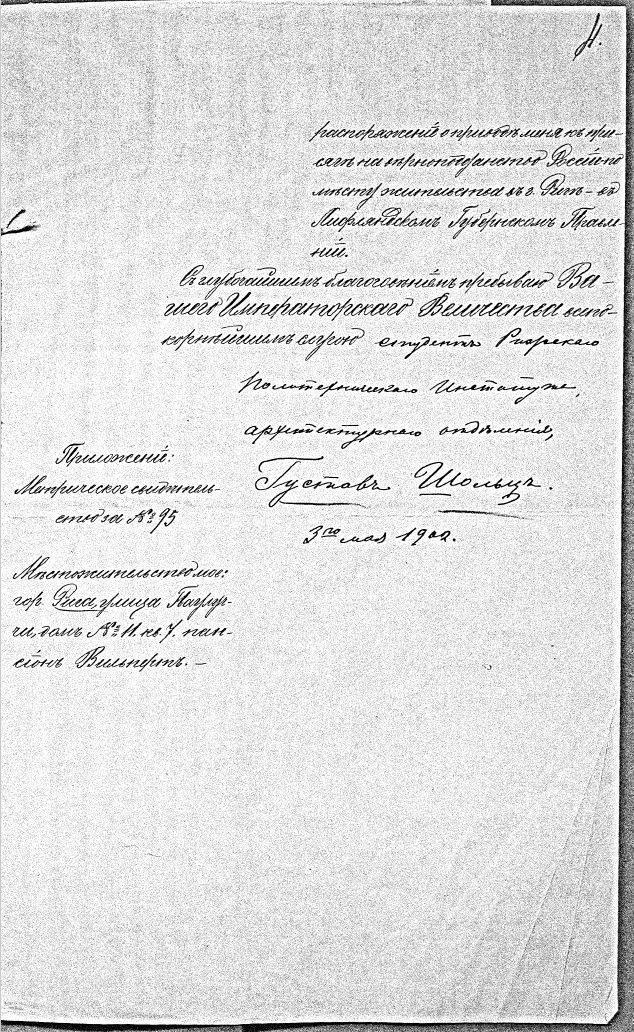 4.
распоряженіе о приводѣ меня къ при-
сягѣ на вѣрноподданство Россіи по
мѣсту жительства въ г. Ригѣ – въ
Лифляндскомъ Губернскомъ Правле-
ніи.
Съ глубочайшимъ благоговѣніемъ пребываю Ва-
шего Императорскаго Величества всепо-
корнѣйшимъ слугою студентъ Рижскаго
Политехническаго Института,
архитектурнаго отдѣленія,
Густавъ Шольцъ.
3го мая 1902.
Приложеніе:
Метрическое свидѣтель-
ство за № 95
Мѣстожительство мое:
гор. Рига, улица
домъ № 11. кв. 7. пан-
сіонъ Вильпертъ. –